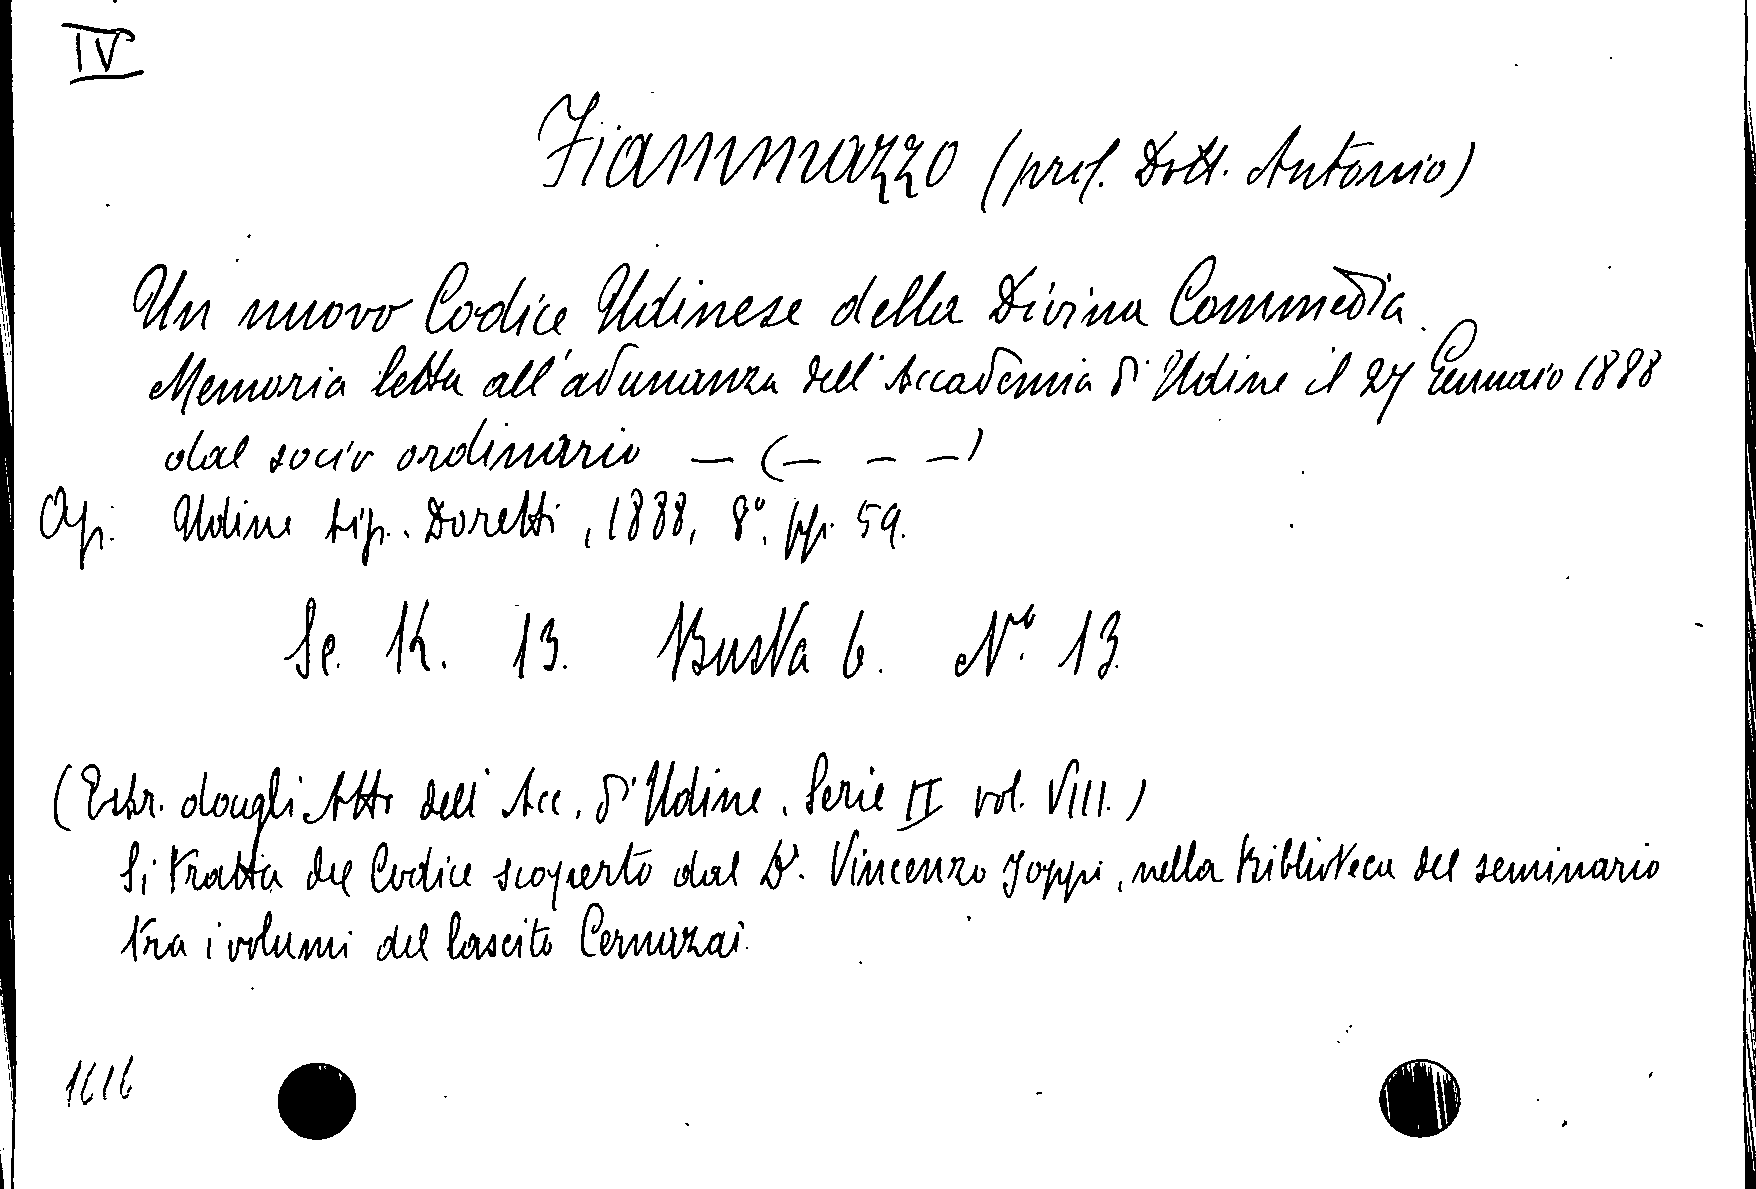 IV
Fiammazzo (prof. Dott. Antonio)
Un nuovo Codice Udinese della Divina Commedia.
Memoria letta all'adunanza dell'Accademia di Udine il 27 Gennaio 1888
dal socio ordinario — (— — —)
Op. Udine tip. Doretti, 1888, 8°. pp. 59.
Se. K. 13. Busta 6. N.° 13.
(Estr. dagli Atti dell'Acc. di Udine. Serie II vol. VIII.)
Si tratta del Codice scoperto dal Dr. Vincenzo Joppi, nella biblioteca del seminario
tra i volumi del lascito Cernazai.
1616